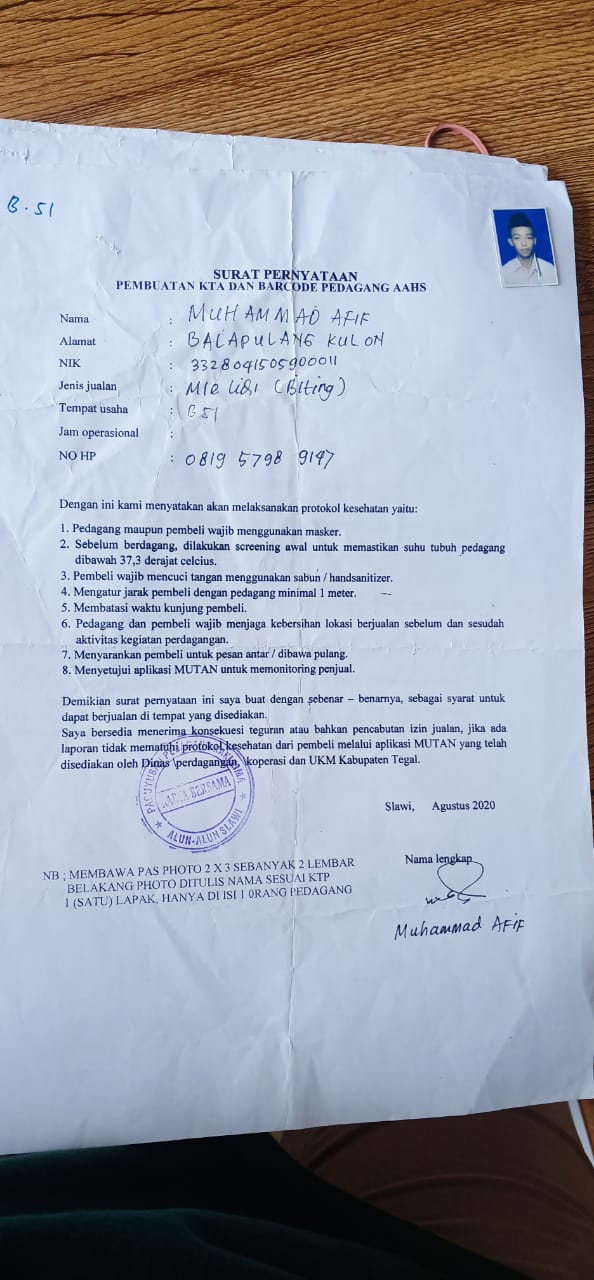 B.51
SURAT PERNYATAAN
PEMBUATAN KTA DAN BARCODE PEDAGANG AAHS
Nama : MUHAMMAD AFIF
Alamat : BALAPULANG KULON
NIK : 3328041505900011
Jenis jualan : MIE LIDI (BITING)
Tempat usaha : B51
Jam operasional :
NO HP : 0819 5798 9147
Dengan ini kami menyatakan akan melaksanakan protokol kesehatan yaitu:
1. Pedagang maupun pembeli wajib menggunakan masker.
2. Sebelum berdagang, dilakukan screening awal untuk memastikan suhu tubuh pedagang
dibawah 37,3 derajat celcius.
3. Pembeli wajib mencuci tangan menggunakan sabun / handsanitizer.
4. Mengatur jarak pembeli dengan pedagang minimal 1 meter.
5. Membatasi waktu kunjung pembeli.
6. Pedagang dan pembeli wajib menjaga kebersihan lokasi berjualan sebelum dan sesudah
aktivitas kegiatan perdagangan.
7. Menyarankan pembeli untuk pesan antar / dibawa pulang.
8. Menyetujui aplikasi MUTAN untuk memonitoring penjual.
Demikian surat pernyataan ini saya buat dengan sebenar – benarnya, sebagai syarat untuk
dapat berjualan di tempat yang disediakan.
Saya bersedia menerima konsekuesi teguran atau bahkan pencabutan izin jualan, jika ada
laporan tidak mematuhi protokol kesehatan dari pembeli melalui aplikasi MUTAN yang telah
disediakan oleh Dinas \perdagangan, koperasi dan UKM Kabupaten Tegal.
KARYA BERSAMA
ALUN-ALUN SLAWI
Slawi, Agustus 2020
Nama lengkap
NB ; MEMBAWA PAS PHOTO 2 X 3 SEBANYAK 2 LEMBAR
BELAKANG PHOTO DITULIS NAMA SESUAI KTP
1 (SATU) LAPAK, HANYA DI ISI 1 0RANG PEDAGANG
Muhammad AFIF